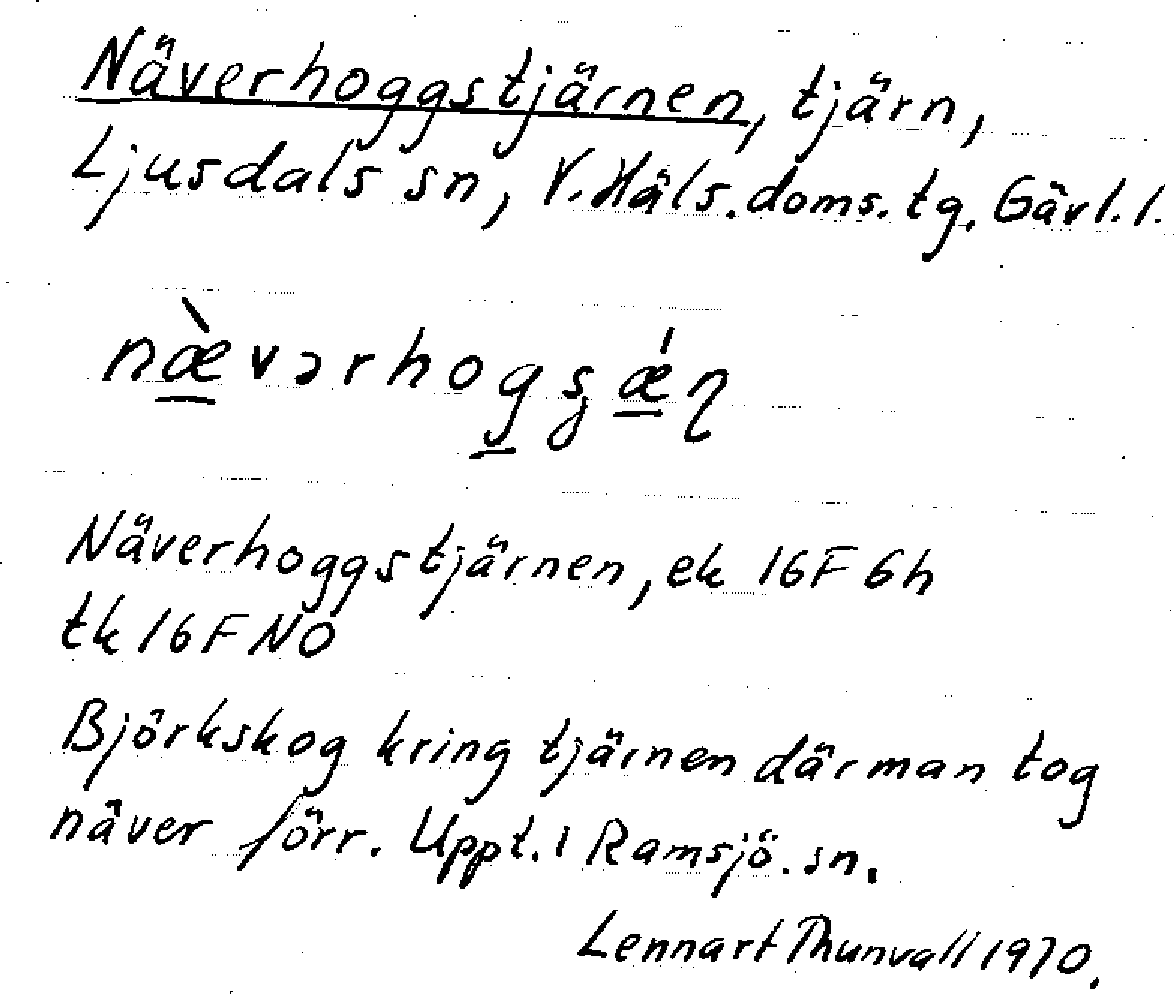 Näverhoggstjärnen, tjärn,
Ljusdals sn, V. Häls. doms. tg. Gävl. l.
næ̀vərhogsʂǽɳ
Näverhoggstjärnen, ek 16F 6h
tk 16F NO
Björkskog kring tjärnen där man tog
näver förr. Uppt. i Ramsjö. sn.
Lennart Thunvall 1970.